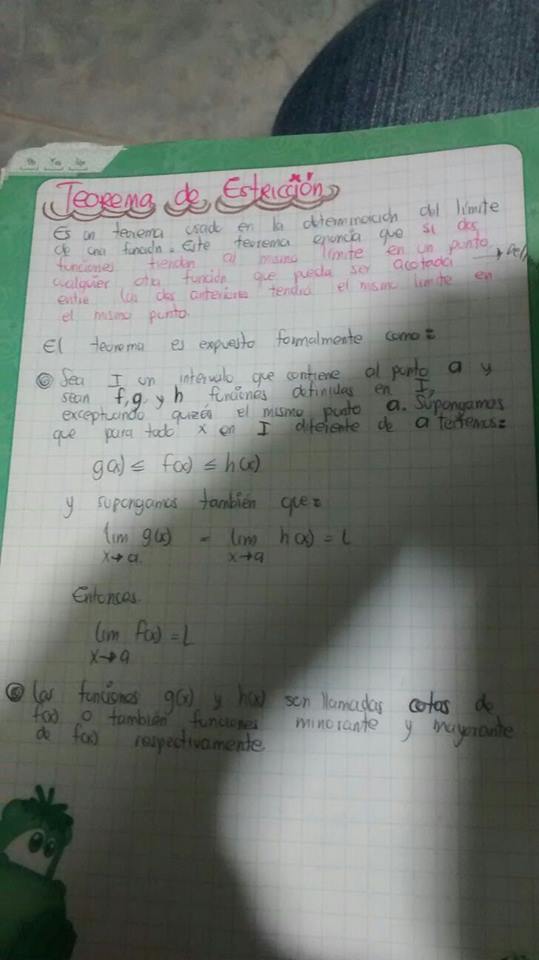 Teorema de Estricción
Es un teorema usado en la determinación del límite
de una función. Este teorema enuncia que si dos
funciones tienden al mismo límite en un punto,
cualquier otra función que pueda ser acotada
entre las dos anteriores tendrá el mismo límite en
el mismo punto.
El teorema es expuesto formalmente como:
Sea I un intervalo que contiene al punto a y
sean f, g y h funciones definidas en I,
exceptuando quizás el mismo punto a. Supongamos
que para todo x en I diferente de a tenemos:
g(x) ≤ f(x) ≤ h(x)
y supongamos también que:
lim g(x) = lim h(x) = L
x→a x→a
Entonces
lim f(x) = L
x→a
Las funciones g(x) y h(x) son llamadas cotas de
f(x) o también funciones minorante y mayorante
de f(x) respectivamente.